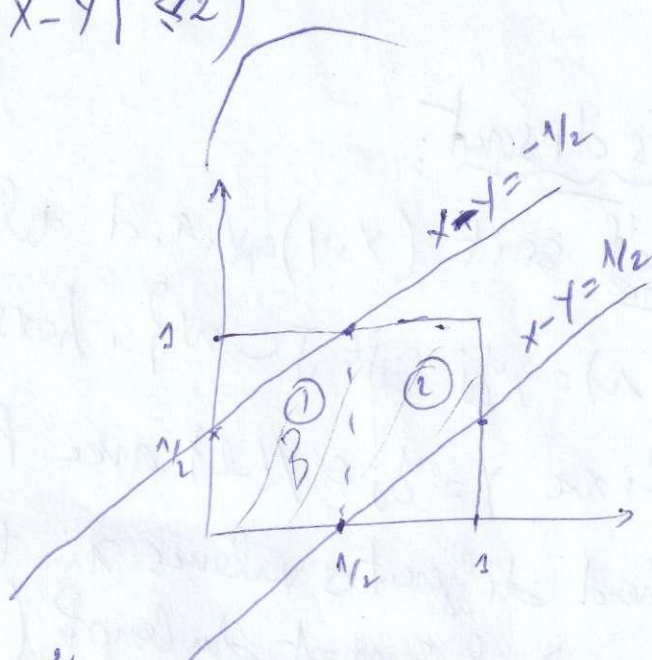 X-Y| ≤ 1/2)
x-y=-1/2
x-y=1/2
1
① ②
1/2 B
1/2 1